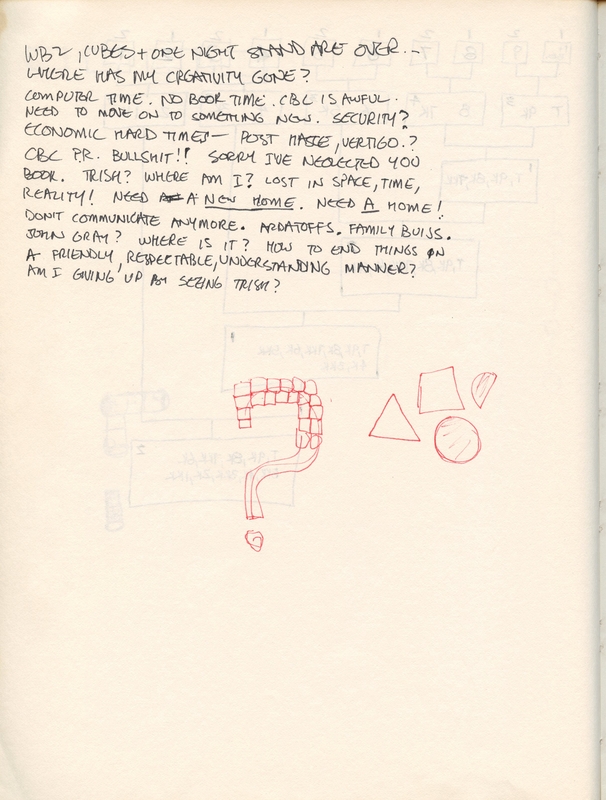 WB2, CUBES + ONE NIGHT STAND ARE OVER...
WHERE HAS MY CREATIVITY GONE?
COMPUTER TIME. NO BOOK TIME. CBC IS AWFUL.
NEED TO MOVE ON TO SOMETHING NEW. SECURITY?
ECONOMIC HARD TIMES — POST VERTIGO.?
CBC P.R. BULLSHIT!! SORRY I'VE NEGLECTED YOU
BOOK. TRISH? WHERE AM I? LOST IN SPACE, TIME,
REALITY! NEED A NEW HOME. NEED A HOME!
DON'T COMMUNICATE ANYMORE. ARDATOFFS. FAMILY BUISS.
JOHN GRAY? WHERE IS IT? HOW TO END THINGS IN
A FRIENDLY, RESPECTABLE, UNDERSTANDING MANNER?
AM I GIVING UP BY SEEING TRISH?